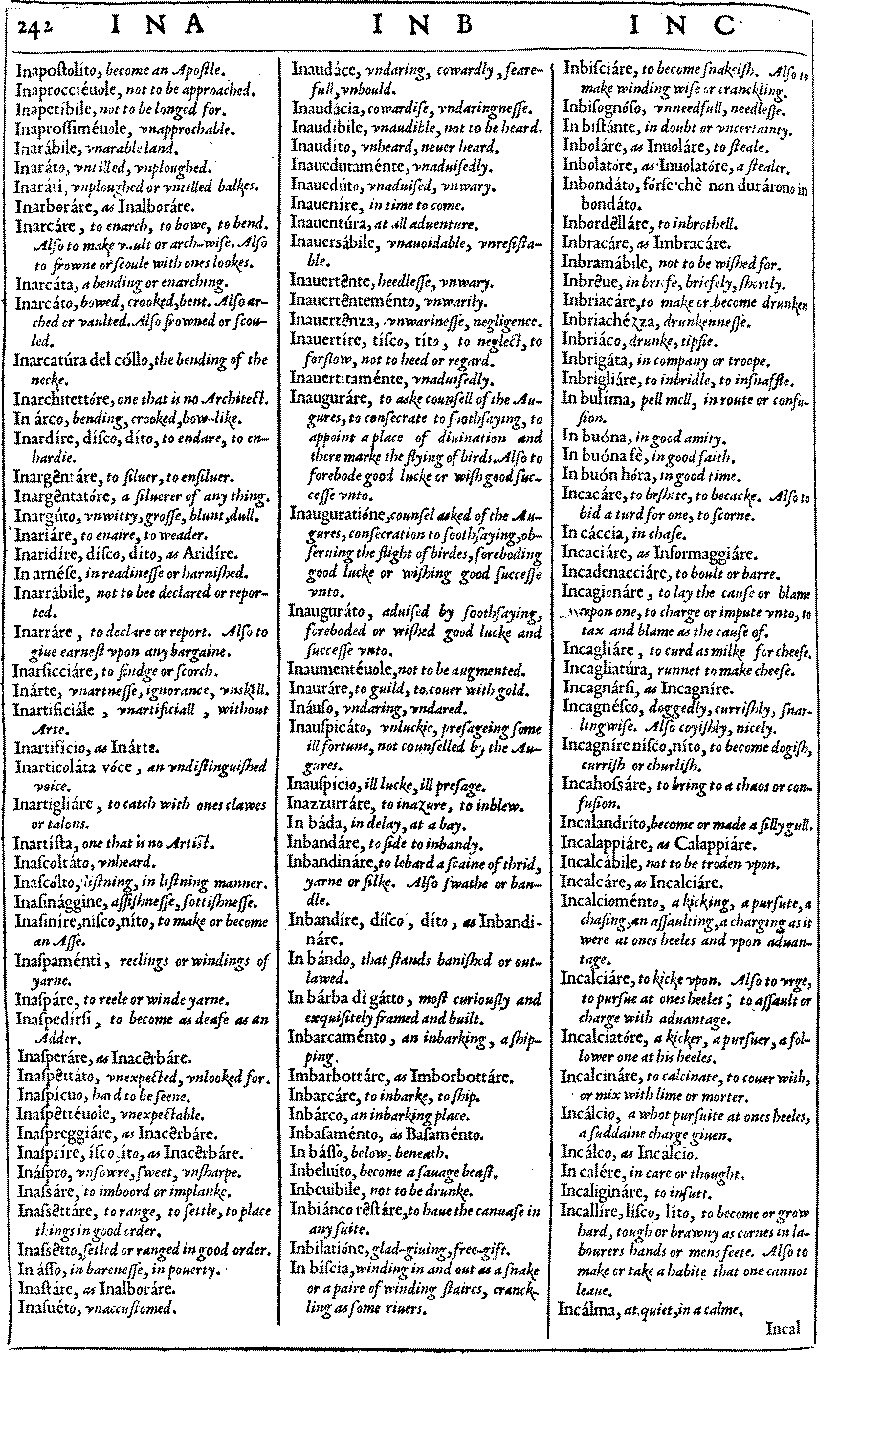 242 INA INB INC
Inapostolíto, become an Apostle.
Inaprocciéuole, not to be approached.
Inapetibile, not to be longed for.
Inaprossiméuole, vnapprochable.
Inarábile, vnarable land.
Inaráto, vntilled, vnploughed.
Inaráti, vnploughed or vntilled balkes.
Inarboráre, as Inalboráre.
Inarcáre, to enarch, to bowe, to bend.
Also to make vault or arch-wise. Also
to frowne or scoule with ones lookes.
Inarcáta, a bending or enarching.
Inarcáto, bowed, crooked, bent. Also ar-
ched or vaulted. Also frowned or scou-
led.
Inarcatúra del cóllo, the bending of the
necke.
Inarchitettóre, one that is no Architect.
In árco, bending, crooked, bow-like.
Inardíre, dísco, díto, to endare, to en-
hardie.
Inargêntáre, to siluer, to ensiluer.
Inargêntatóre, a siluerer of any thing.
Inargúto, vnwitty, grosse, blunt, dull.
Inariáre, to enaire, to weader.
Inaridíre, dísco, dito, as Aridíre.
In arnése, in readinesse or harnished.
Inarrábile, not to bee declared or repor-
ted.
Inarráre, to declare or report. Also to
giue earnest vpon any bargaine.
Inarsicciáre, to sindge or scorch.
Inárte, vnartnesse, ignorance, vnskill.
Inartificiále, vnartificiall, without
Arte.
Inartificio, as Inárte.
Inarticoláta vóce, an vndistinguished
voice.
Inartigliáre, to catch with ones clawes
or talons.
Inartísta, one that is no Artist.
Inascoltáto, vnheard.
Inascólto, listning, in listning manner.
Inasinággine, assishnesse, sottishnesse.
Inasiníre, nísco, níto, to make or become
an Asse.
Inaspaménti, reelings or windings of
yarne.
Inaspáre, to reele or winde yarne.
Inaspedírsi, to become as deafe as an
Adder.
Inasperáre, as Inacêrbáre.
Inaspêttáto, vnexpected, vnlooked for.
Inaspícuo, hard to be seene.
Inaspêttéuole, vnexpectable.
Inaspreggiáre, as Inacêrbáre.
Inaspríre, ísco, íto, as Inacêrbáre.
Ináspro, vnsowre, sweet, vnsharpe.
Inassáre, to imboord or implanke.
Inassêttáre, to range, to settle, to place
things in good order.
Inassêtto, setled or ranged in good order.
In ásso, in barenesse, in pouerty.
Inastáre, as Inalboráre.
Inasuéto, vnaccustomed.
Inaudáce, vndaring, cowardly, feare-
full, vnbould.
Inaudácia, cowardise, vndaringnesse.
Inaudíbile, vnaudible, not to be heard.
Inaudíto, vnheard, neuer heard.
Inauedutaménte, vnaduisedly.
Inauedúto, vnaduised, vnwary.
Inaueníre, in time to come.
Inauentúra, at all aduenture.
Inauersábile, vnauoidable, vnresista-
ble.
Inauertênte, heedlesse, vnwary.
Inauertênteménto, vnwarily.
Inauertênza, vnwarinesse, negligence.
Inauertíre, tísco, títo, to neglect, to
forslow, not to heed or regard.
Inauertitaménte, vnaduisedly.
Inauguráre, to aske counsell of the Au-
gures, to consecrate to soothsaying, to
appoint a place of diuination and
there marke the flying of birds. Also to
forebode good lucke or wish good suc-
cesse vnto.
Inauguratióne, counsel asked of the Au-
gures, consecration to soothsaying, ob-
seruing the flight of birdes, foreboding
good lucke or wishing good successe
vnto.
Inauguráto, aduised by soothsaying,
foreboded or wished good lucke and
successe vnto.
Inaumentéuole, not to be augmented.
Inauráre, to guild, to couer with gold.
Ináuso, vndaring, vndared.
Inauspicáto, vnluckie, presageing some
ill fortune, not counselled by the Au-
gures.
Inauspício, ill lucke, ill presage.
Inazzurráre, to inazure, to inblew.
In báda, in delay, at a bay.
Inbandáre, to side to inbandy.
Inbandináre, to lebard a scaine of thrid,
yarne or silke. Also swathe or ban-
dle.
Inbandíre, dísco, díto, as Inbandi-
náre.
In bándo, that stands banished or out-
lawed.
In bárba di gátto, most curiously and
exquisitely framed and built.
Inbarcaménto, an inbarking, a ship-
ping.
Imbarbottáre, as Imborbottáre.
Inbarcáre, to inbarke, to ship.
Inbárco, an inbarking place.
Inbasaménto, as Basaménto.
In básso, below, beneath.
Inbeluíto, become a sauage beast.
Inbeuíbile, not to be drunke.
Inbiánco rêstáre, to haue the canuase in
any suite.
Inbilatióne, glad-giuing, free-gift.
In bíscia, winding in and out as a snake
or a paire of winding staires, cranck-
ling as some riuers.
Inbisciáre, to become snakeish. Also to
make winding wise or cranckling.
Inbisognóso, vnneedfull, needlesse.
In bistánte, in doubt or vncertainty.
Inboláre, as Inuoláre, to steale.
Inbolatóre, as Inuolatóre, a stealer.
Inbondáto, fórse chè non durárono in
bondáto.
Inbordêlláre, to inbrothell.
Inbracáre, as Imbracáre.
Inbramábile, not to be wished for.
Inbrêue, in briefe, briefely, shortly.
Inbriacáre, to make or become drunken
Inbriachézza, drunkennesse.
Inbriáco, drunke, tipsie.
Inbrigáta, in company or troope.
Inbrigliáre, to inbridle, to insnaffle.
In bulíma, pell mell, in route or confu-
sion.
In buóna, in good amity.
In buóna fè, in good faith.
In buón hóra, in good time.
Incacáre, to beshite, to becacke. Also to
bid a turd for one, to scorne.
In cáccia, in chase.
Incaciáre, as Informaggiáre.
Incadenacciáre, to boult or barre.
Incagionáre, to lay the cause or blame
vpon one, to charge or impute vnto, to
tax and blame as the cause of.
Incagliáre, to curd as milke for cheese.
Incagliatúra, runnet to make cheese.
Incagnársi, as Incagníre.
Incagnésco, doggedly, currishly, snar-
lingwise. Also coyishly, nicely.
Incagníre nísco, níto, to become dogish,
currish or churlish.
Incahossáre, to bring to a chaos or con-
fusion.
Incalandríto, become or made a silly gull.
Incalappiáre, as Calappiáre.
Incalcábile, not to be troden vpon.
Incalcáre, as Incalciáre.
Incalcioménto, a kicking, a pursute, a
chasing, an assaulting, a charging as it
were at ones heeles and vpon aduan-
tage.
Incalciáre, to kicke vpon. Also to vrge,
to pursue at ones heeles; to assault or
charge with aduantage.
Incalciatóre, a kicker, a pursuer, a fol-
lower one at his heeles.
Incalcináre, to calcinate, to couer with,
or mix with lime or morter.
Incálcio, a whot pursuite at ones heeles,
a suddaine charge giuen.
Incálco, as Incálcio.
In calére, in care or thought.
Incaligináre, to infuet.
Incallíre, lísco, líto, to become or grow
hard, tough or brawny as cornes in la-
bourers hands or mens feete. Also to
make or take a habite that one cannot
leaue.
Incálma, at quiet, in a calme.
Incal